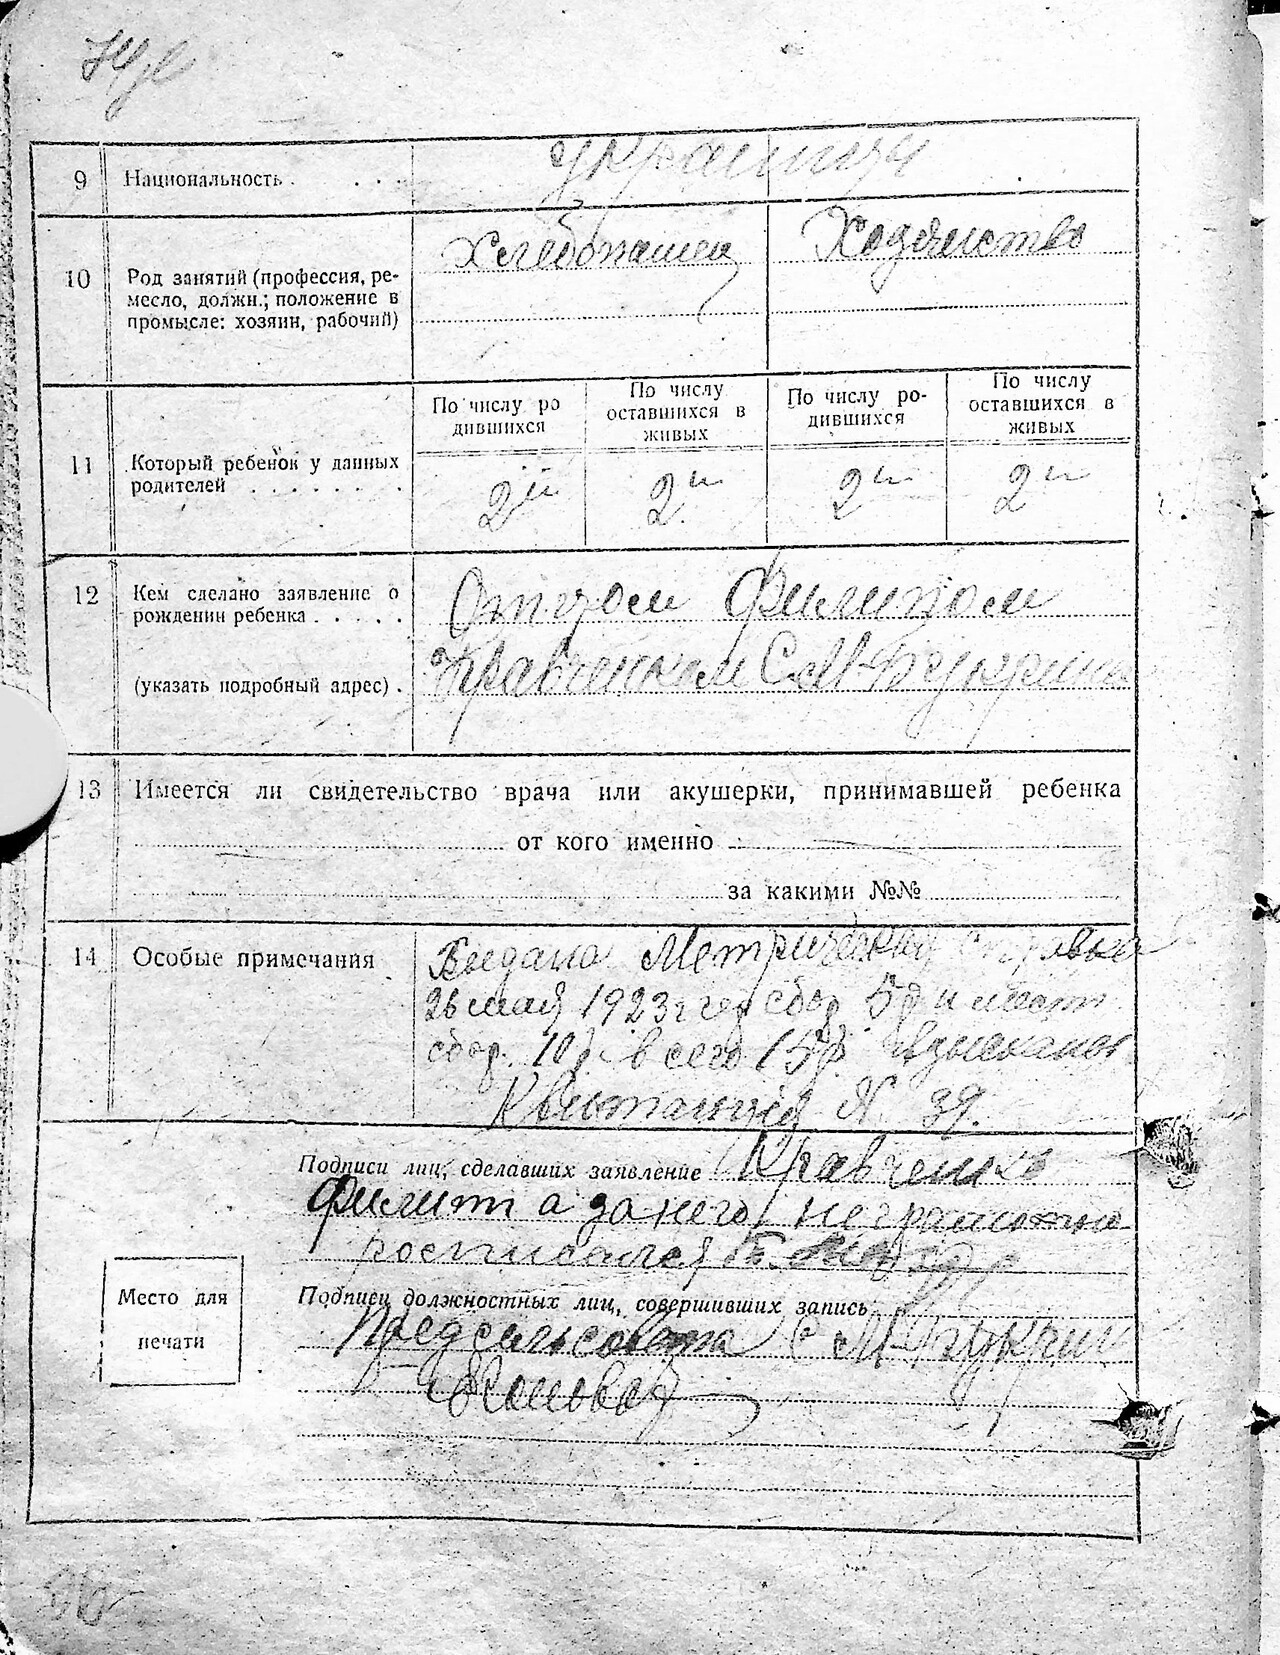 9 Национальность . . . украинцы
10 Род занятий (профессия, ре-
месло, должн.; положение в
промысле: хозяин, рабочий)
Хлебопашец
Ходяиство
11 Который ребенок у данных
родителей . . . . . . .
По число ро
дившихся
По числу
оставшихся в
живых
По числу ро-
дившихся
По числу
оставшихся в
живых
2й 2й 2й 2й
12 Кем сделано заявление о
рождении ребенка . . . . .
(указать подробный адрес) .
Отцом Филипом
Кравченком С. М-Букрина
13 Имеется ли свидетельство врача или акушерки, принимавшей ребенка
от кого именно
за какими №№
14 Особые примечания
Видана Метрическая справка
26 мая 1923 г сбор 5р и мест
сбор. 10р всего 15р взысканы
Квитанция N 39.
Подписи лиц, сделавших заявление Кравченко
Филип а за него неграмотно
росписался
Место для
печати
Подписи должностных лиц, совершивших запись
Предсельсовета с М-Букрин